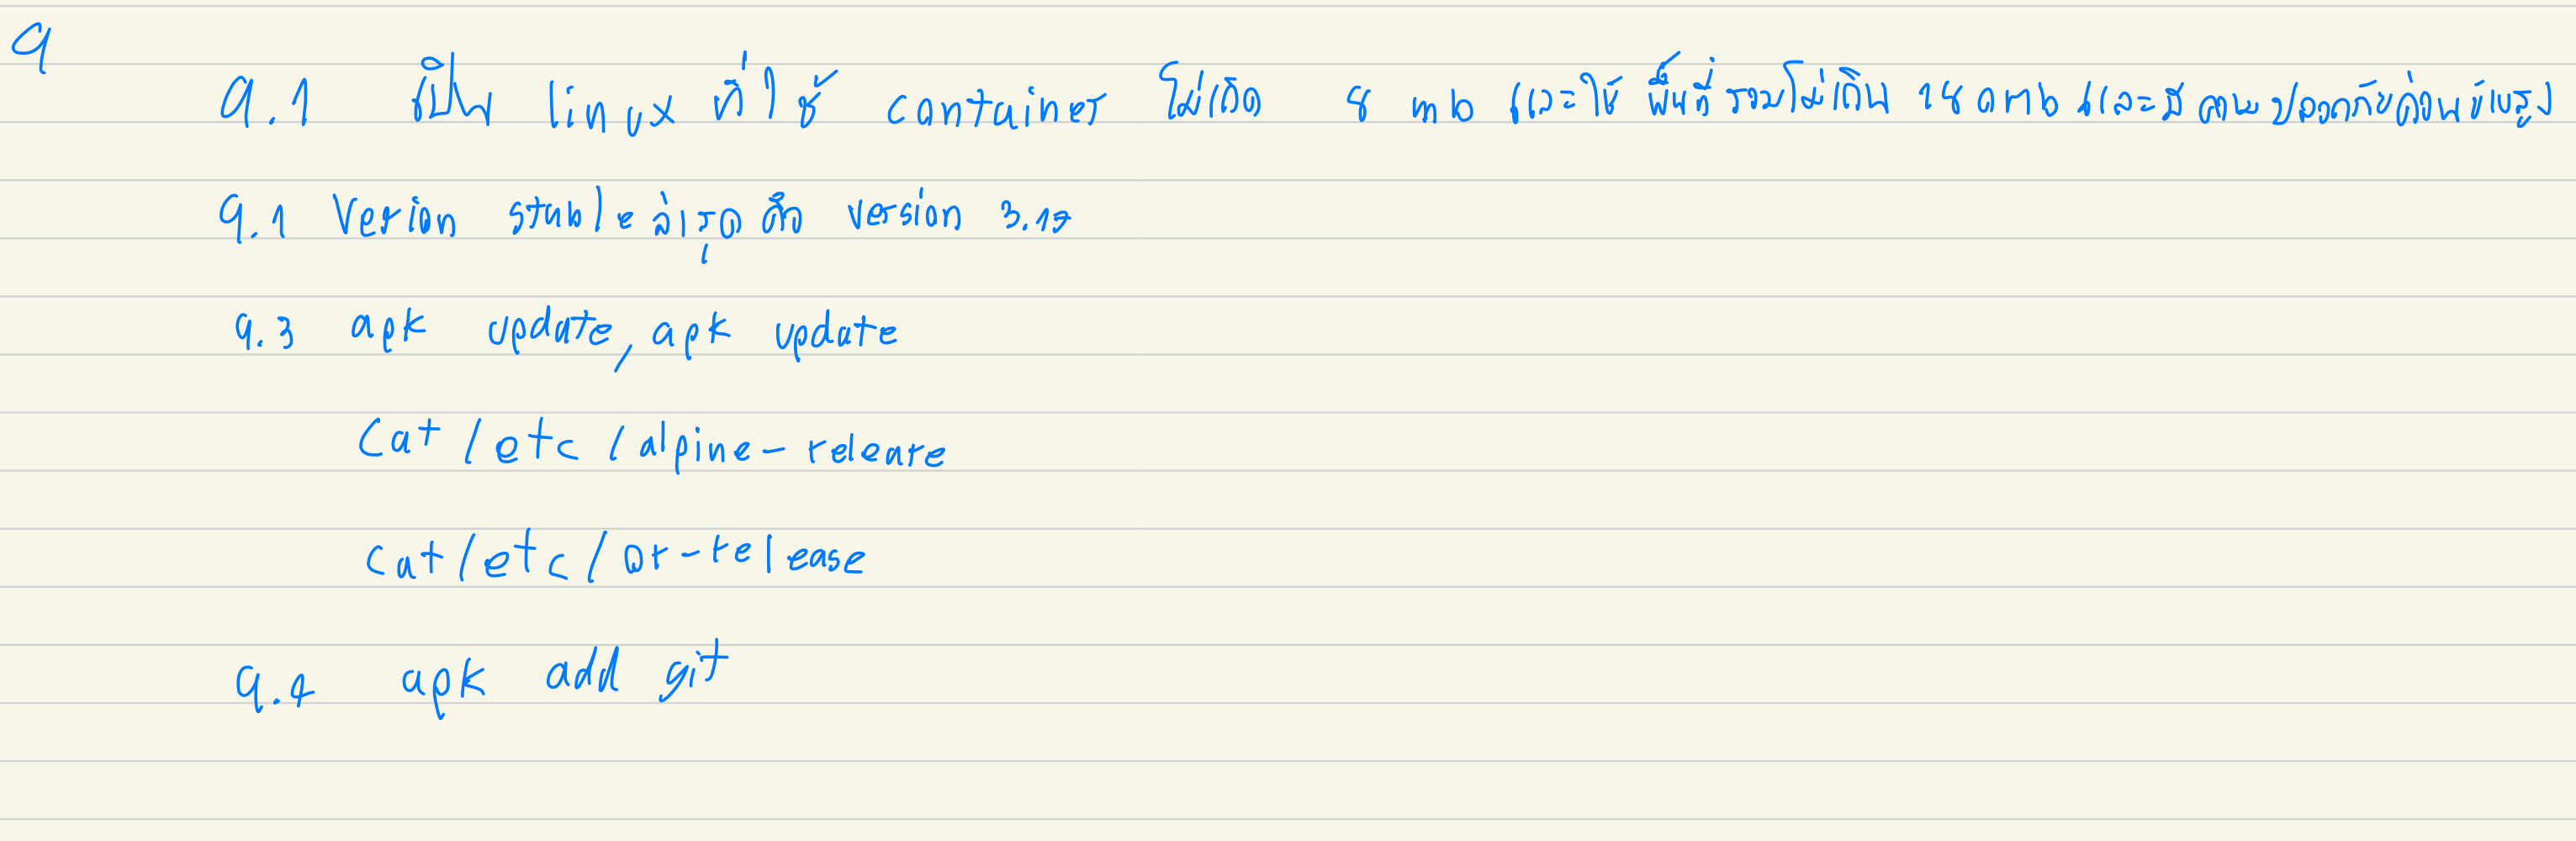 9
9.1 เป็น linux ที่ใช้ container ไม่เกิด 8 mb และใช้ พื้นที่ รวมไม่เกิน 180mb และมี ความปลอดภัยค่อนข้างสูง
9.1 Verion stable ล่าสุด คือ version 3.17
9.3 apk update, apk update
Cat /etc /alpine-release
cat /etc / os-release
9.4 apk add git